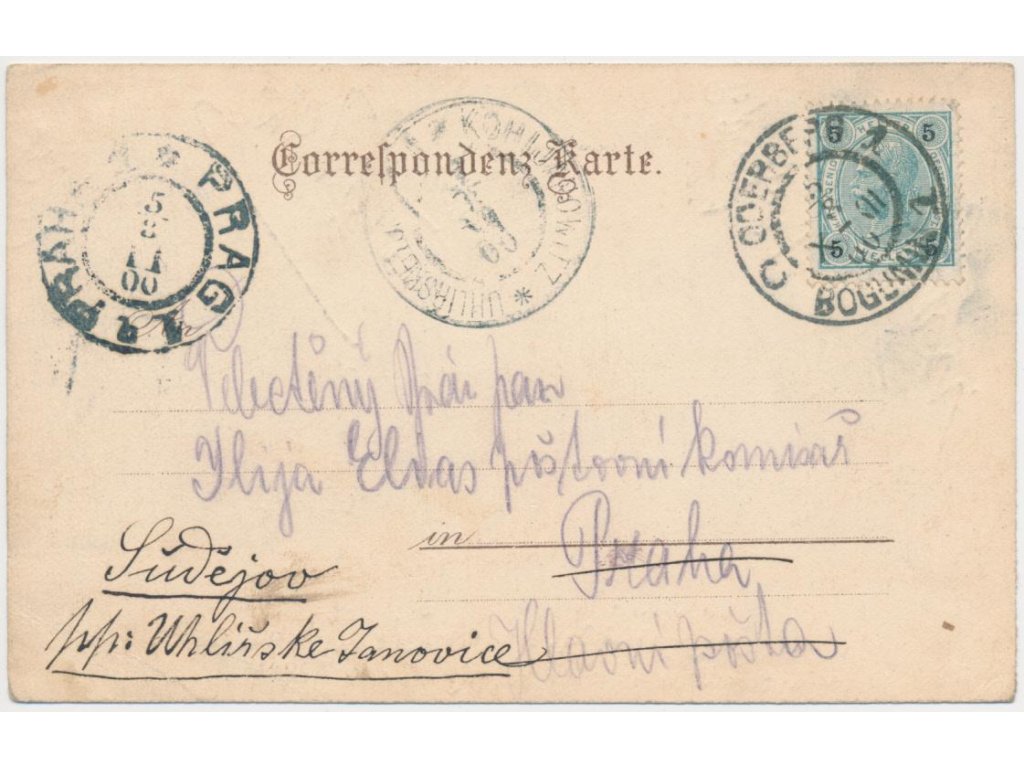 Correspondenz-Karte.
* PRAG 1 * PRAHA 1
5 8 11 00
* KOHLJANOWITZ * UHLÍŘSKÉ
00
ODERBERG 1
BOGUMIN 1
5 5
5 5
An
Velectěný Pán pan
Ilija Elvas poštovní komisař
in Praha
Hlavní pošta
Súdějov
pp: Uhlířske Janovice